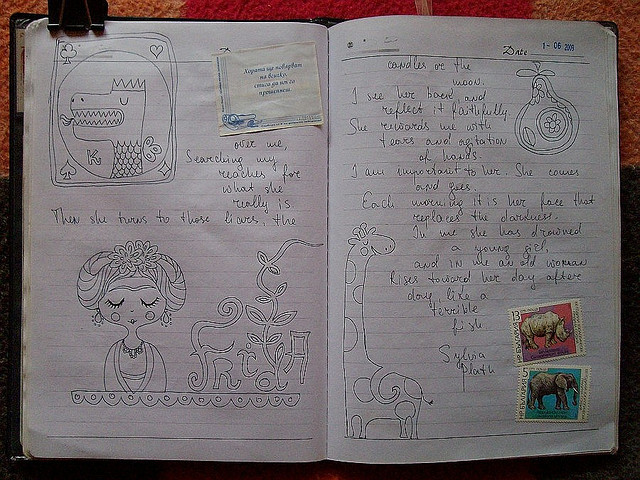 K
Хората ще повярват
на всичко,
стига да им го
прошепнеш.
over me,
Searching my
reaches for
what she
really is
Then she turns to those liars, the
Frida
Date
1-06 2009
candles or the
moon.
I see her back, and
reflect it faithfully
She rewards me with
tears and agitation
of hands.
I am important to her. She comes
and goes.
Each morning it is her face that
replaces the darkness.
In me she has drowned
a young girl,
and in me an old woman
Rises toward her day after
day, like a
terrible
fish
Sylvia
Plath
13
НР БЪЛГАРИЯ
НР БЪЛГАРИЯ